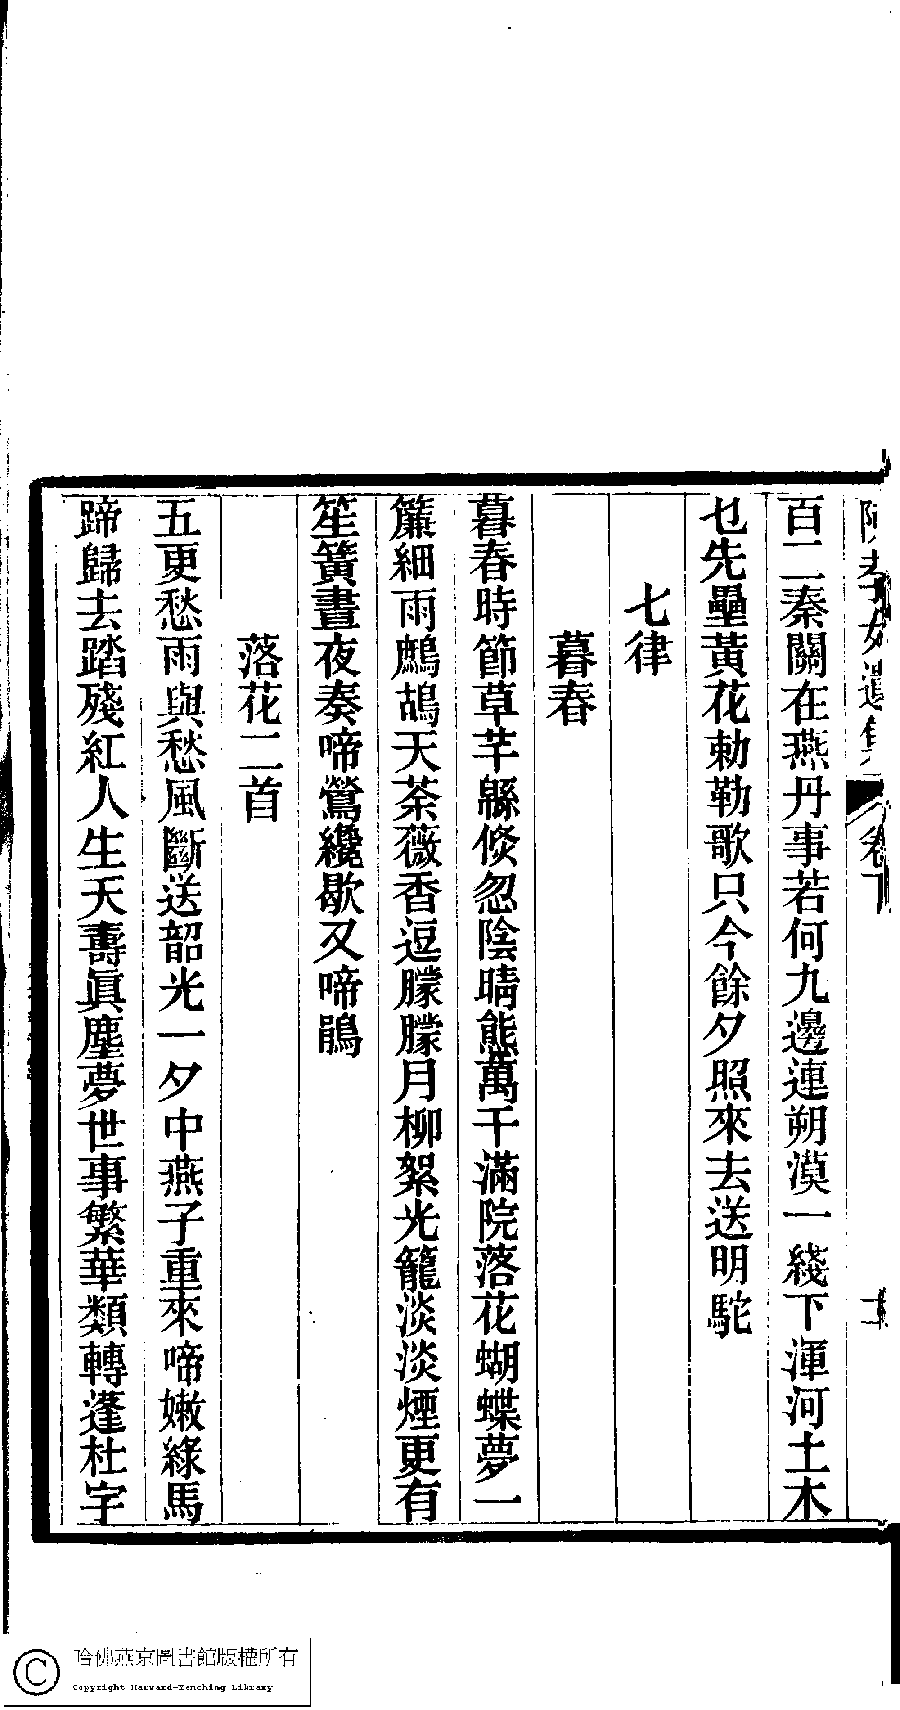 陳孝女遺集 卷下
百二秦關在燕丹事若何九邊連朔漠一綫下渾河土木
乜先壘黃花勅勒歌只今餘夕照來去送明駝
七律
暮春
暮春時節草芊緜倐忽陰晴態萬千滿院落花蝴蝶夢一
簾細雨鷓鴣天荼薇香逗朦朦月柳絮光籠淡淡煙更有
笙簧晝夜奏啼鶯纔歇又啼鵑
落花二首
五更愁雨與愁風斷送韶光一夕中燕子重來啼嫩綠馬
蹄歸去踏殘紅人生夭壽眞塵夢世事繁華類轉蓬杜宇
哈佛燕京圖書館版權所有
Copyright Harvard-Yenching Library